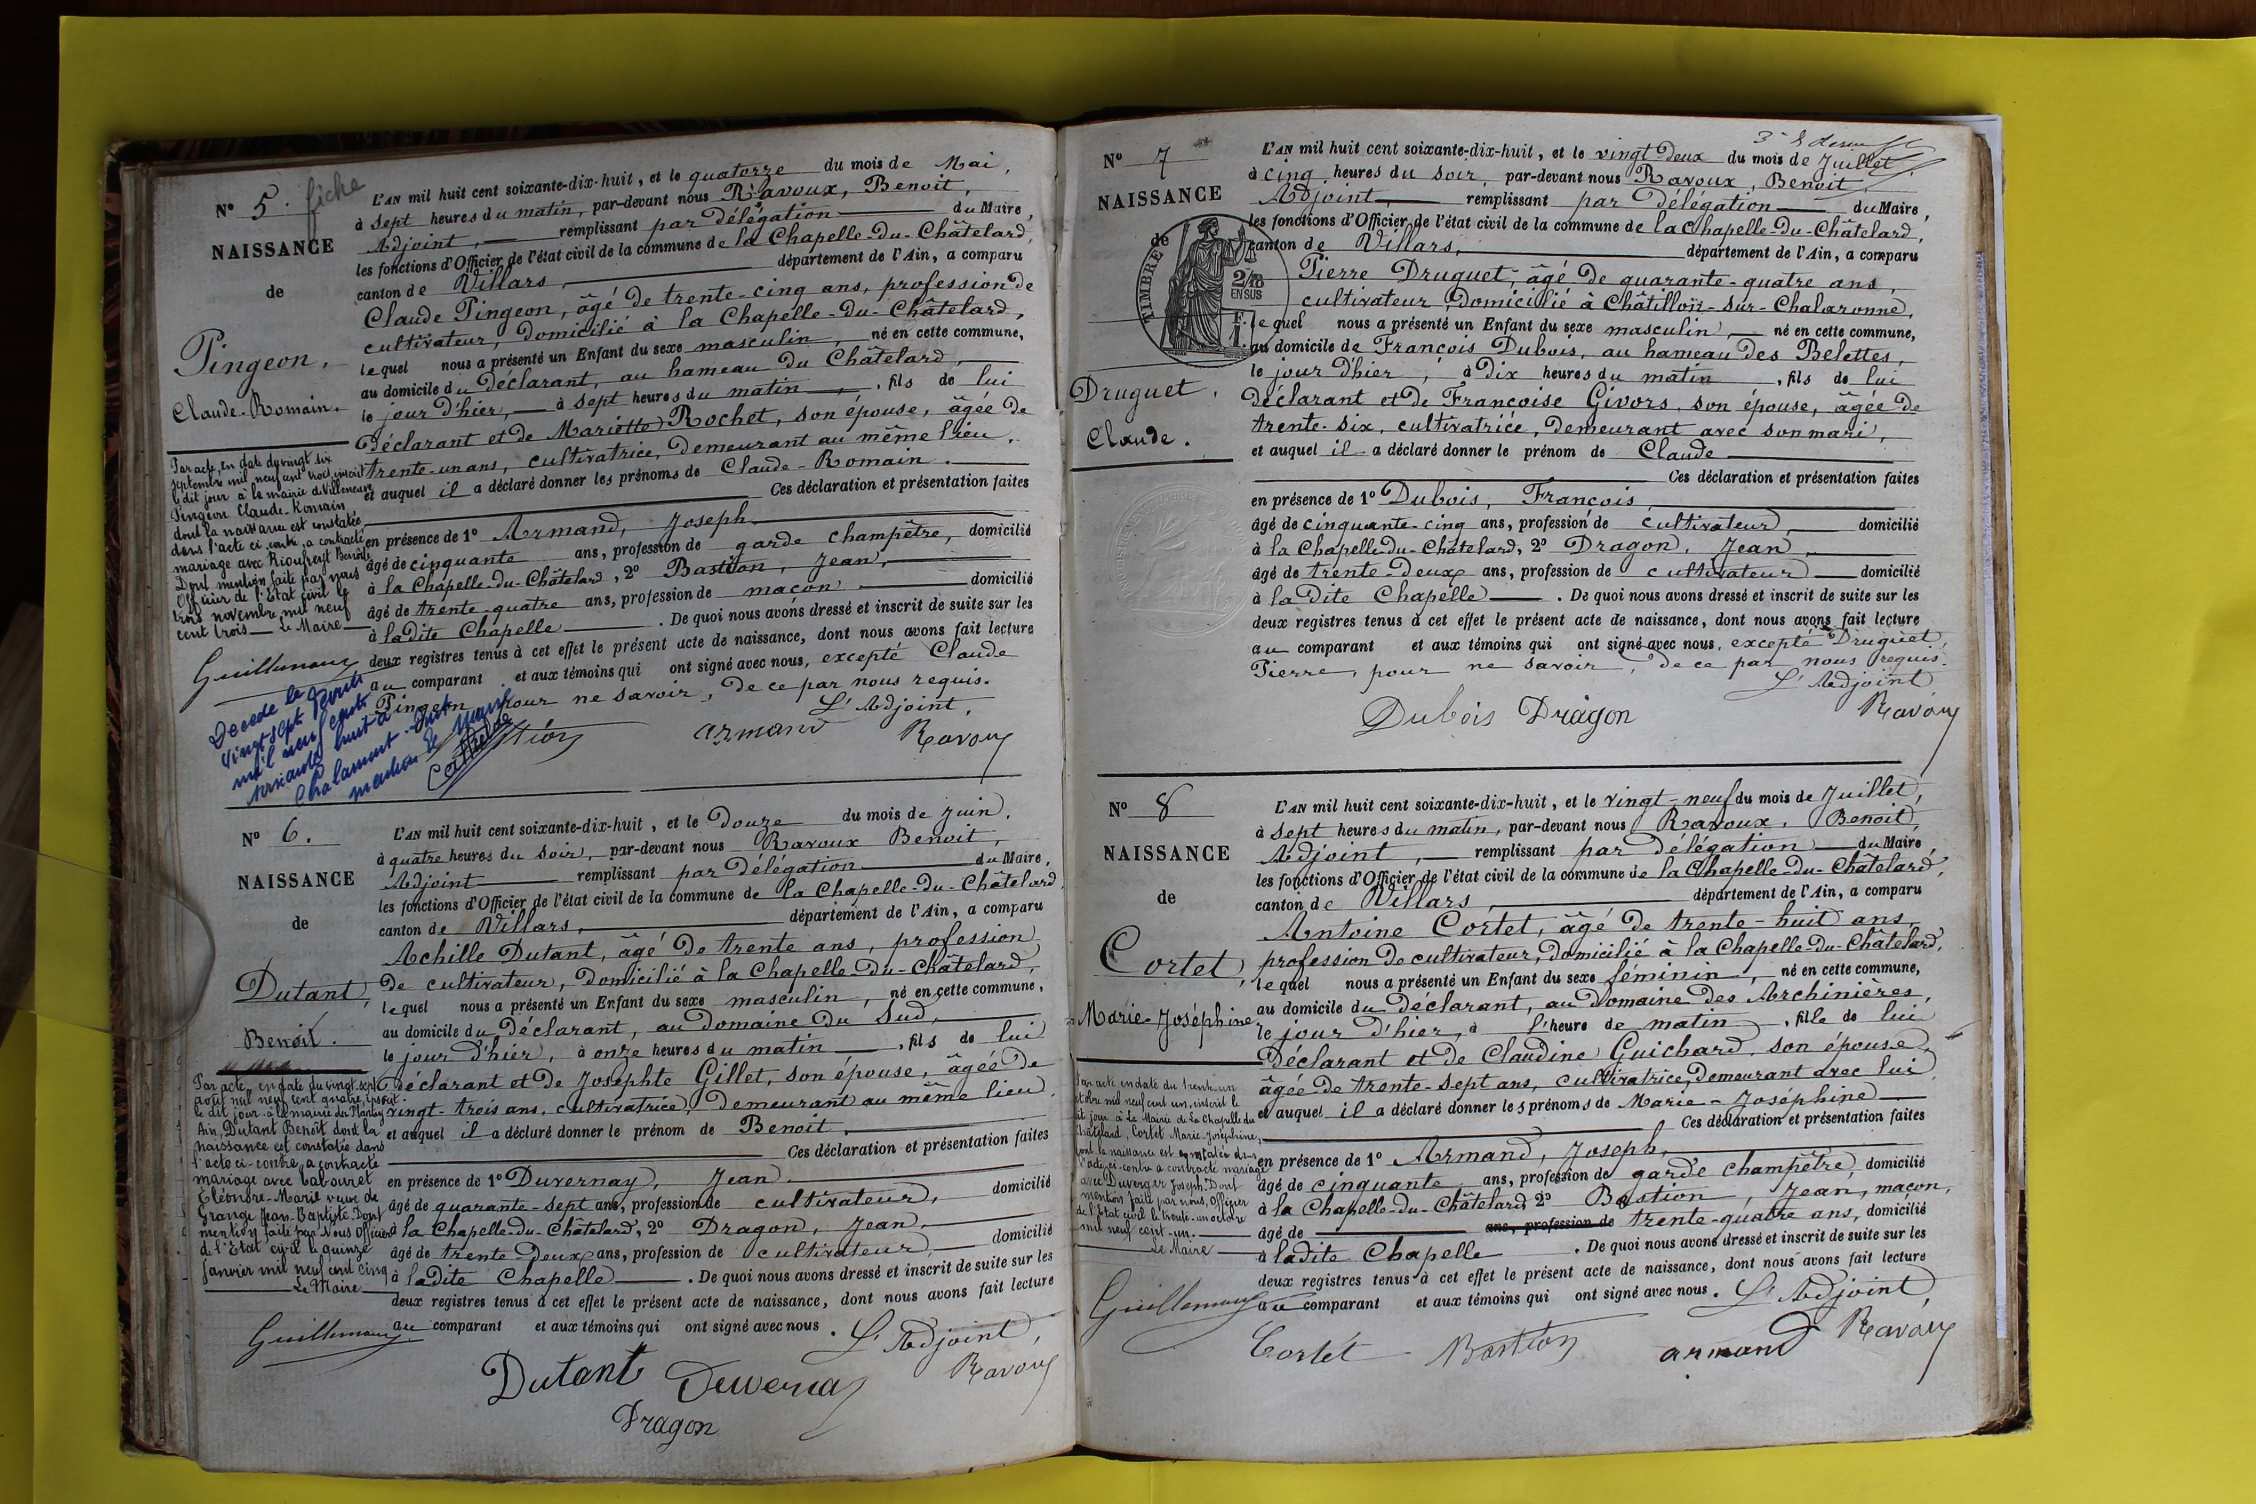 N° 5. fiche
NAISSANCE
de
Pingeon,
Claude-Romain.
Par acte, en date du vingt six
septembre mil neuf cent trois, inscrit
le dit jour à la mairie de Villeneuve
Pingeon Claude-Romain
dont la naissance est constatée
dans l'acte ci-contre, a contracté
mariage avec Rioufreyt Benoîte
Dont mention faite par nous
Officier de l'État civil le
trois novembre mil neuf
cent trois — Le Maire —
Guillemaux
Décédé le
vingt sept
mil neuf cent
à
Chalamont. Dont
mention
L'AN mil huit cent soixante-dix-huit, et le quatorze du mois de Mai,
à sept heures du matin, par-devant nous Ravoux, Benoit,
Adjoint, — remplissant par délégation — du Maire,
les fonctions d'Officier de l'état civil de la commune de la Chapelle-du-Châtelard,
canton de Villars, — département de l'Ain, a comparu
Claude Pingeon, âgé de trente-cinq ans, profession de
cultivateur, domicilié à la Chapelle-du-Châtelard,
lequel nous a présenté un Enfant du sexe masculin, — né en cette commune,
au domicile du Déclarant, au hameau du Châtelard,
le jour d'hier, — à sept heures du matin —, fils de lui
déclarant et de Mariette Rochet, son épouse, âgée de
trente-un ans, cultivatrice, demeurant au même lieu.
et auquel il a déclaré donner les prénoms de Claude-Romain.
Ces déclaration et présentation faites
en présence de 1° Armand, Joseph
âgé de cinquante ans, profession de garde champêtre, domicilié
à la Chapelle-du-Châtelard, 2° Bastion, Jean,
âgé de trente-quatre ans, profession de maçon — domicilié
à ladite Chapelle — . De quoi nous avons dressé et inscrit de suite sur les
deux registres tenus à cet effet le présent acte de naissance, dont nous avons fait lecture
au comparant et aux témoins qui ont signé avec nous, excepté Claude
Pingeon pour ne savoir, de ce par nous requis.
L'Adjoint,
Bastion armand Ravoux
N° 6.
NAISSANCE
de
Dutant,
Benoit.
Par acte en date du vingt-sept
août mil neuf cent quatre, inscrit
le dit jour à la mairie du Plantay
Ain, Dutant Benoît dont la
naissance est constatée dans
l'acte ci-contre, a contracté
mariage avec Labouret
Eléonore-Marie veuve de
Grange Jean-Baptiste. Dont
mention faite par Nous Officier
de l'État civil le quinze
janvier mil neuf cent cinq
— Le Maire —
Guillemaux
L'AN mil huit cent soixante-dix-huit, et le Douze du mois de juin,
à quatre heures du soir, par-devant nous Ravoux Benoit,
Adjoint — remplissant par délégation — du Maire,
les fonctions d'Officier de l'état civil de la commune de la Chapelle-du-Châtelard
canton de Villars, — département de l'Ain, a comparu
Achille Dutant, âgé de trente ans, profession
de cultivateur, domicilié à la Chapelle-du-Châtelard,
lequel nous a présenté un Enfant du sexe masculin, né en cette commune,
au domicile du Déclarant, au domaine du Sud,
le jour d'hier, à onze heures du matin —, fils de lui
déclarant et de Josephte Gillet, son épouse, âgée de
vingt-trois ans, cultivatrice, demeurant au même lieu.
et auquel il a déclaré donner le prénom de Benoit,
Ces déclaration et présentation faites
en présence de 1° Duvernay, Jean
âgé de quarante-sept ans, profession de cultivateur, domicilié
à la Chapelle-du-Châtelard, 2° Dragon, Jean,
âgé de trente-deux ans, profession de cultivateur, — domicilié
à ladite Chapelle — . De quoi nous avons dressé et inscrit de suite sur les
deux registres tenus à cet effet le présent acte de naissance, dont nous avons fait lecture
au comparant et aux témoins qui ont signé avec nous. L'Adjoint,
Dutant Duvernay Ravoux
Dragon
N° 7
NAISSANCE
de
TIMBRE
2/10
EN SUS
Druguet,
Claude.
L'AN mil huit cent soixante-dix-huit, et le vingt-deux du mois de Juillet
à cinq heures du soir, par-devant nous Ravoux, Benoit,
Adjoint, — remplissant par délégation — du Maire,
les fonctions d'Officier de l'état civil de la commune de la Chapelle-du-Châtelard,
canton de Villars, — département de l'Ain, a comparu
Pierre Druguet, âgé de quarante-quatre ans,
cultivateur, domicilié à Châtillon-sur-Chalaronne,
lequel nous a présenté un Enfant du sexe masculin, — né en cette commune,
au domicile de François Dubois, au hameau des Belettes,
le jour d'hier, à dix heures du matin, fils de lui
déclarant et de Françoise Givors, son épouse, âgée de
trente-six, cultivatrice, demeurant avec son mari,
et auquel il a déclaré donner le prénom de Claude
Ces déclaration et présentation faites
en présence de 1° Dubois, François
âgé de cinquante-cinq ans, profession de cultivateur, — domicilié
à la Chapelle-du-Châtelard, 2° Dragon, Jean,
âgé de trente-deux ans, profession de cultivateur — domicilié
à ladite Chapelle — . De quoi nous avons dressé et inscrit de suite sur les
deux registres tenus à cet effet le présent acte de naissance, dont nous avons fait lecture
au comparant et aux témoins qui ont signé avec nous, excepté Druguet,
Pierre, pour ne savoir, de ce par nous requis.
L'Adjoint
Dubois Dragon Ravoux
N° 8
NAISSANCE
de
Cortet,
Marie-Joséphine
Par acte en date du trente-un
octobre mil neuf cent un, inscrit le
dit jour à la Mairie de La Chapelle du
Châtelard, Cortet Marie-Joséphine,
dont la naissance est constatée dans
l'acte ci-contre a contracté mariage
avec Duverger Joseph. Dont
mention faite par nous, Officier
de l'État civil le trente-un octobre
mil neuf cent-un.
Le Maire
Guillemaux
L'AN mil huit cent soixante-dix-huit, et le vingt-neuf du mois de Juillet,
à sept heures du matin, par-devant nous Ravoux, Benoit,
Adjoint, — remplissant par délégation — du Maire,
les fonctions d'Officier de l'état civil de la commune de la Chapelle-du-Châtelard,
canton de Villars, — département de l'Ain, a comparu
Antoine Cortet, âgé de trente-huit ans,
profession de cultivateur, domicilié à la Chapelle-du-Châtelard,
lequel nous a présenté un Enfant du sexe féminin, né en cette commune,
au domicile du Déclarant, au domaine des Archinières,
le jour d'hier, à 1/heure de matin, fille de lui
déclarant et de Claudine Guichard, son épouse,
âgée de trente-sept ans, cultivatrice, demeurant avec lui
et auquel il a déclaré donner les prénoms de Marie-Joséphine
Ces déclaration et présentation faites
en présence de 1° Armand, Joseph,
âgé de cinquante ans, profession de garde champêtre, domicilié
à la Chapelle-du-Châtelard 2° Bastion, Jean, maçon,
âgé de — ans, profession de trente-quatre ans, domicilié
à ladite Chapelle — . De quoi nous avons dressé et inscrit de suite sur les
deux registres tenus à cet effet le présent acte de naissance, dont nous avons fait lecture
au comparant et aux témoins qui ont signé avec nous. L'Adjoint,
Cortet Bastion armand Ravoux